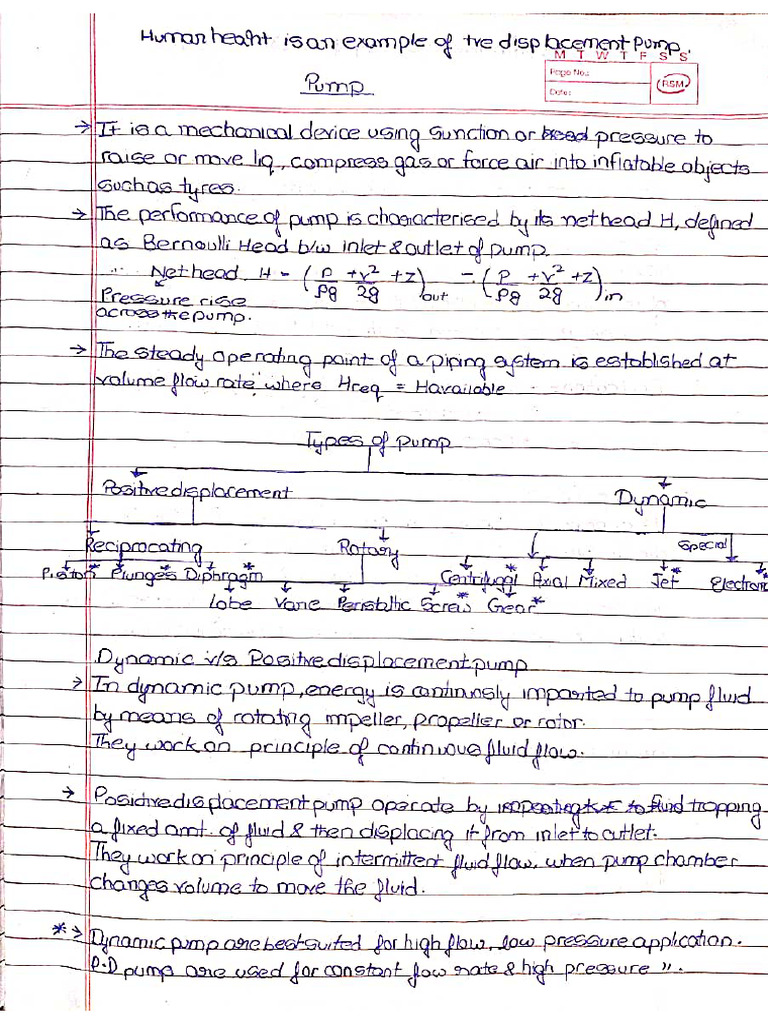 Human heaght is an example of tve displacement Pump.
M T W T F S S
Page No.:
Date:
RSM
Pump
→ It is a mechanical device using sunction or pressure to
raise or move liq, compress gas or force air into inflatable objects
such as tyres.
→ The performance of pump is characterised by its net head H, defined
as Bernoulli Head b/w inlet & outlet of pump.
∴ Net head H = (P/ρg + v²/2g + z)out - (P/ρg + v²/2g + z)in
Pressure rise
across the pump.
→ The steady operating point of a piping system is established at
volume flow rate where Hreq = Havailable
Types of pump
Positive displacement Dynamic
Reciprocating Rotary Special
Piston* Plunges* Diphragm* Centrifugal* Axial Mixed Jet* Electron*
Lobe Vane Peristaltic Screw* Gear*
Dynamic v/s Positive displacement pump
→ In dynamic pump, energy is continusly imparted to pump fluid
by means of rotating impeller, propeller or rotor.
They work on principle of continuous fluid flow.
→ Positive displacement pump operate by trapping
a fixed amt. of fluid & then displacing it from inlet to outlet.
They work on principle of intermittent fluid flow, when pump chamber
changes volume to move the fluid.
*→ Dynamic pump are best suited for high flow, low pressure application.
P.D pump are used for constant flow rate & high pressure ".